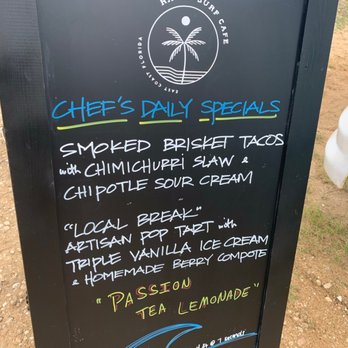 SURF CAFE
EAST COAST FLORIDA
CHEF'S DAILY SPECIALS
SMOKED BRISKET TACOS
with CHIMICHURRI SLAW &
CHIPOTLE SOUR CREAM
"LOCAL BREAK"
ARTISAN POP TART with
TRIPLE VANILLA ICE CREAM
& HOMEMADE BERRY COMPOTE
"PASSION
TEA LEMONADE"